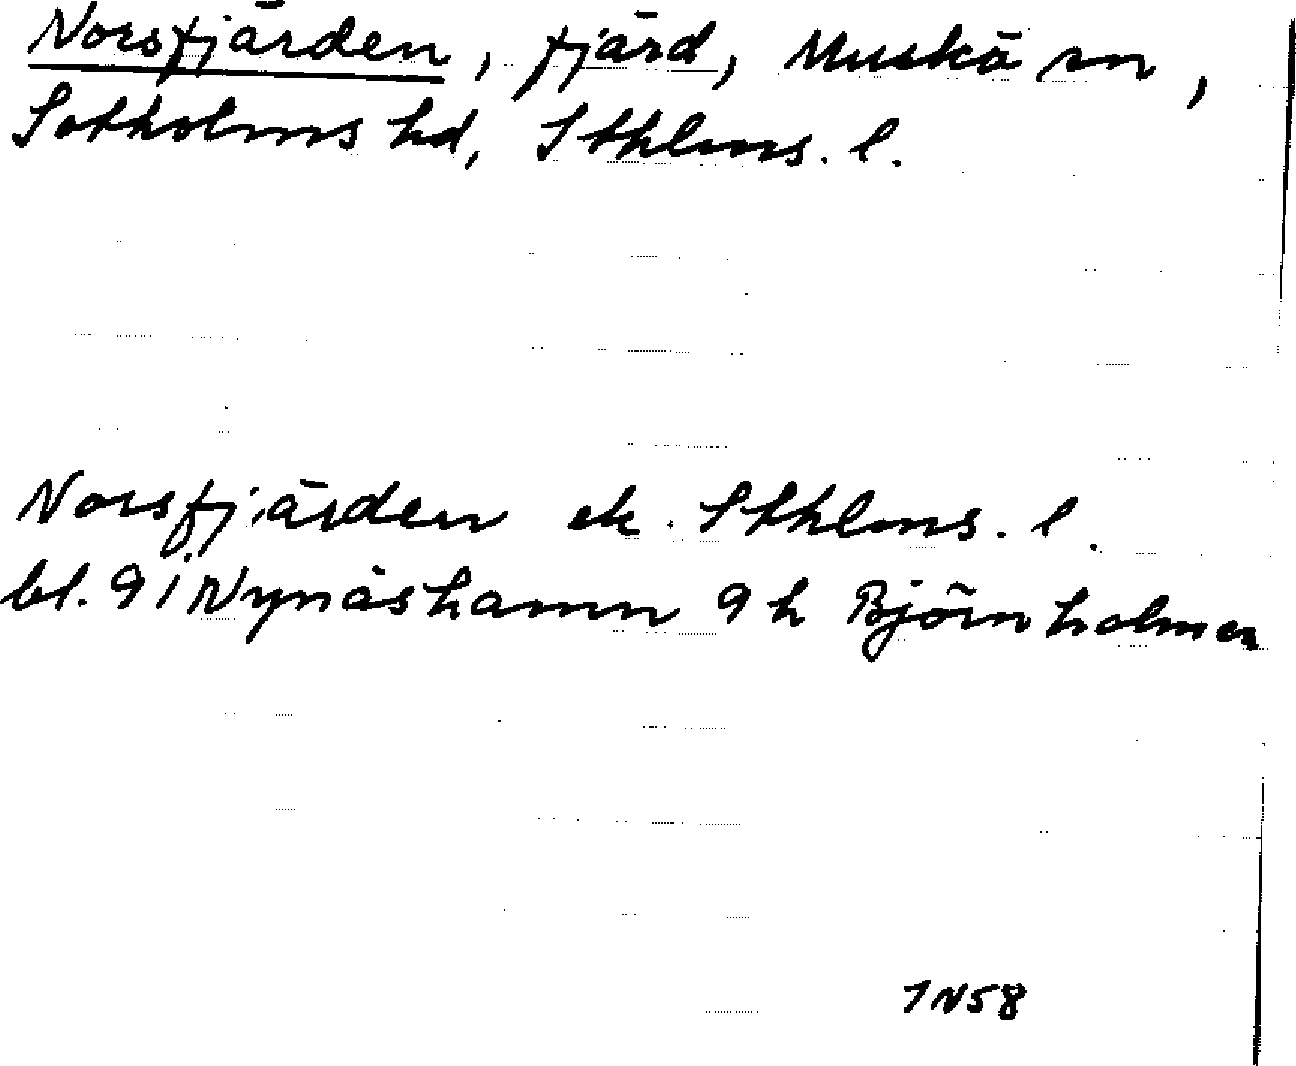 Norsfjärden, fjärd, Muskö sn,
Sotholms hd, Sthlms. l.
Norsfjärden ek. Sthlms. l.
bl. 9 i Nynäshamn 9 h Björnholmen
IN58